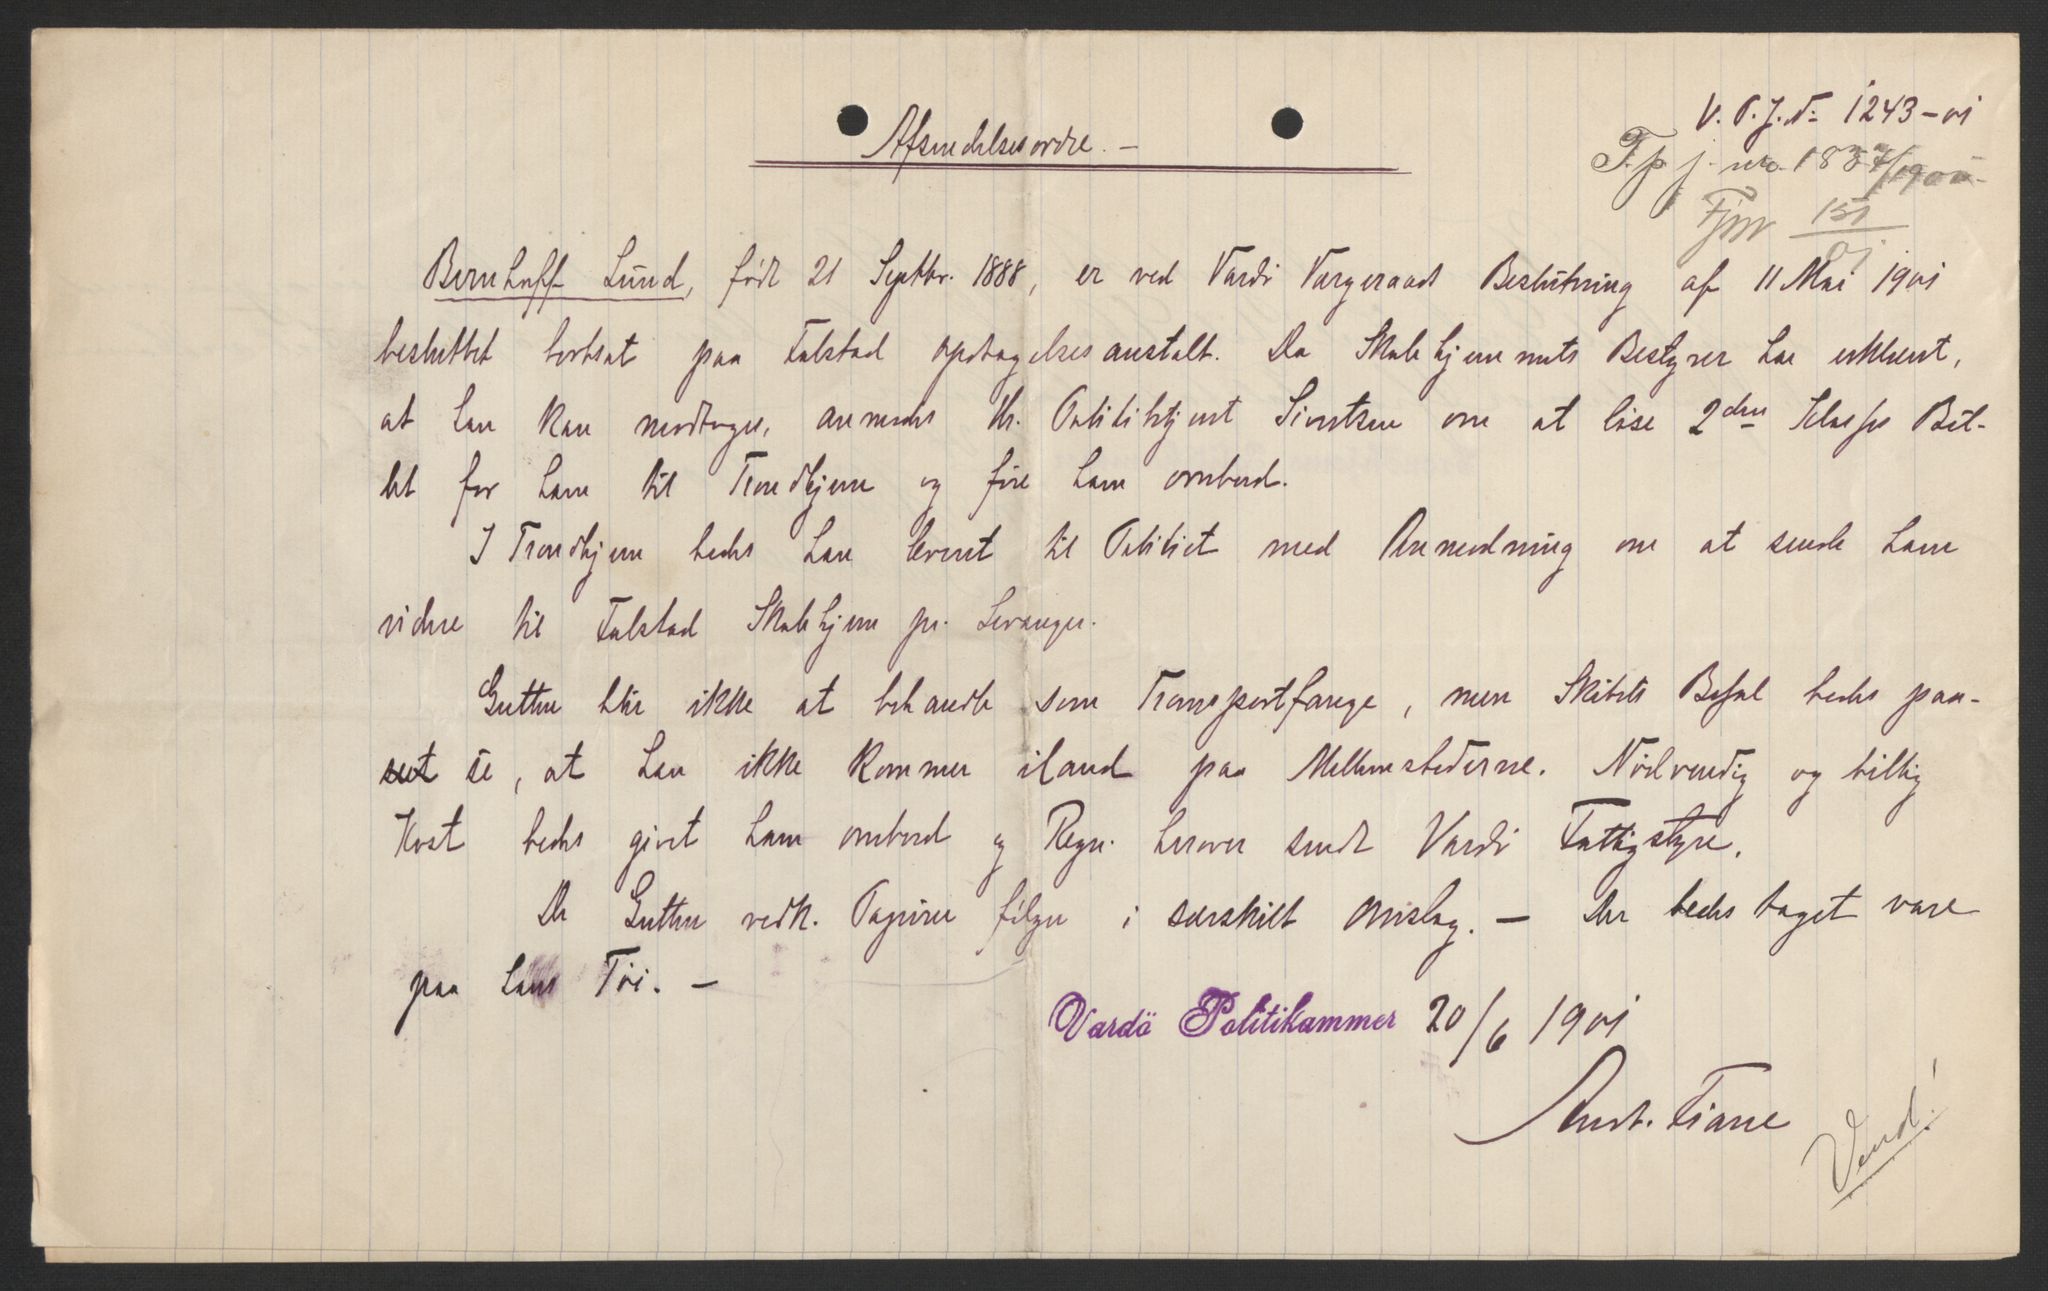 V. P. J. N: 1243-01
Afsendelsesordre. -
F. p j. nro. 1837/1900
Fjnr 151/01
Bernhoff Lund, født 21 Septbr. 1888, er ved Vardø Værgeraads Beslutning af 11 Mai 1901
besluttet bortsat paa Falstad opdragelsesanstalt. Da Skolehjemmets Bestyrer har erklæret,
at han kan modtages, anmodes Hr. Politibetjent Sivertsen om at løse 2den Klasses Bil-
let for ham til Trondhjem og føre ham ombord.
I Trondhjem bedes han leveret til Politiet med Anmodning om at sende ham
videre til Falstad Skolehjem pr. Levanger.
Gutten blir ikke at behandle som Transportfange, men Skibets Befal bedes paa-
se, at han ikke kommer iland paa Mellemstederne. Nødvendig og billig
Kost bedes givet ham ombord og Regn. herover sendt Vardø Fattigstyre.
De Gutten vedk. Papirer følger i særskilt Omslag. - Der bedes taget vare
paa hans Tøi. -
Vardö Politikammer 20/6 1901
Fiane
Vend!